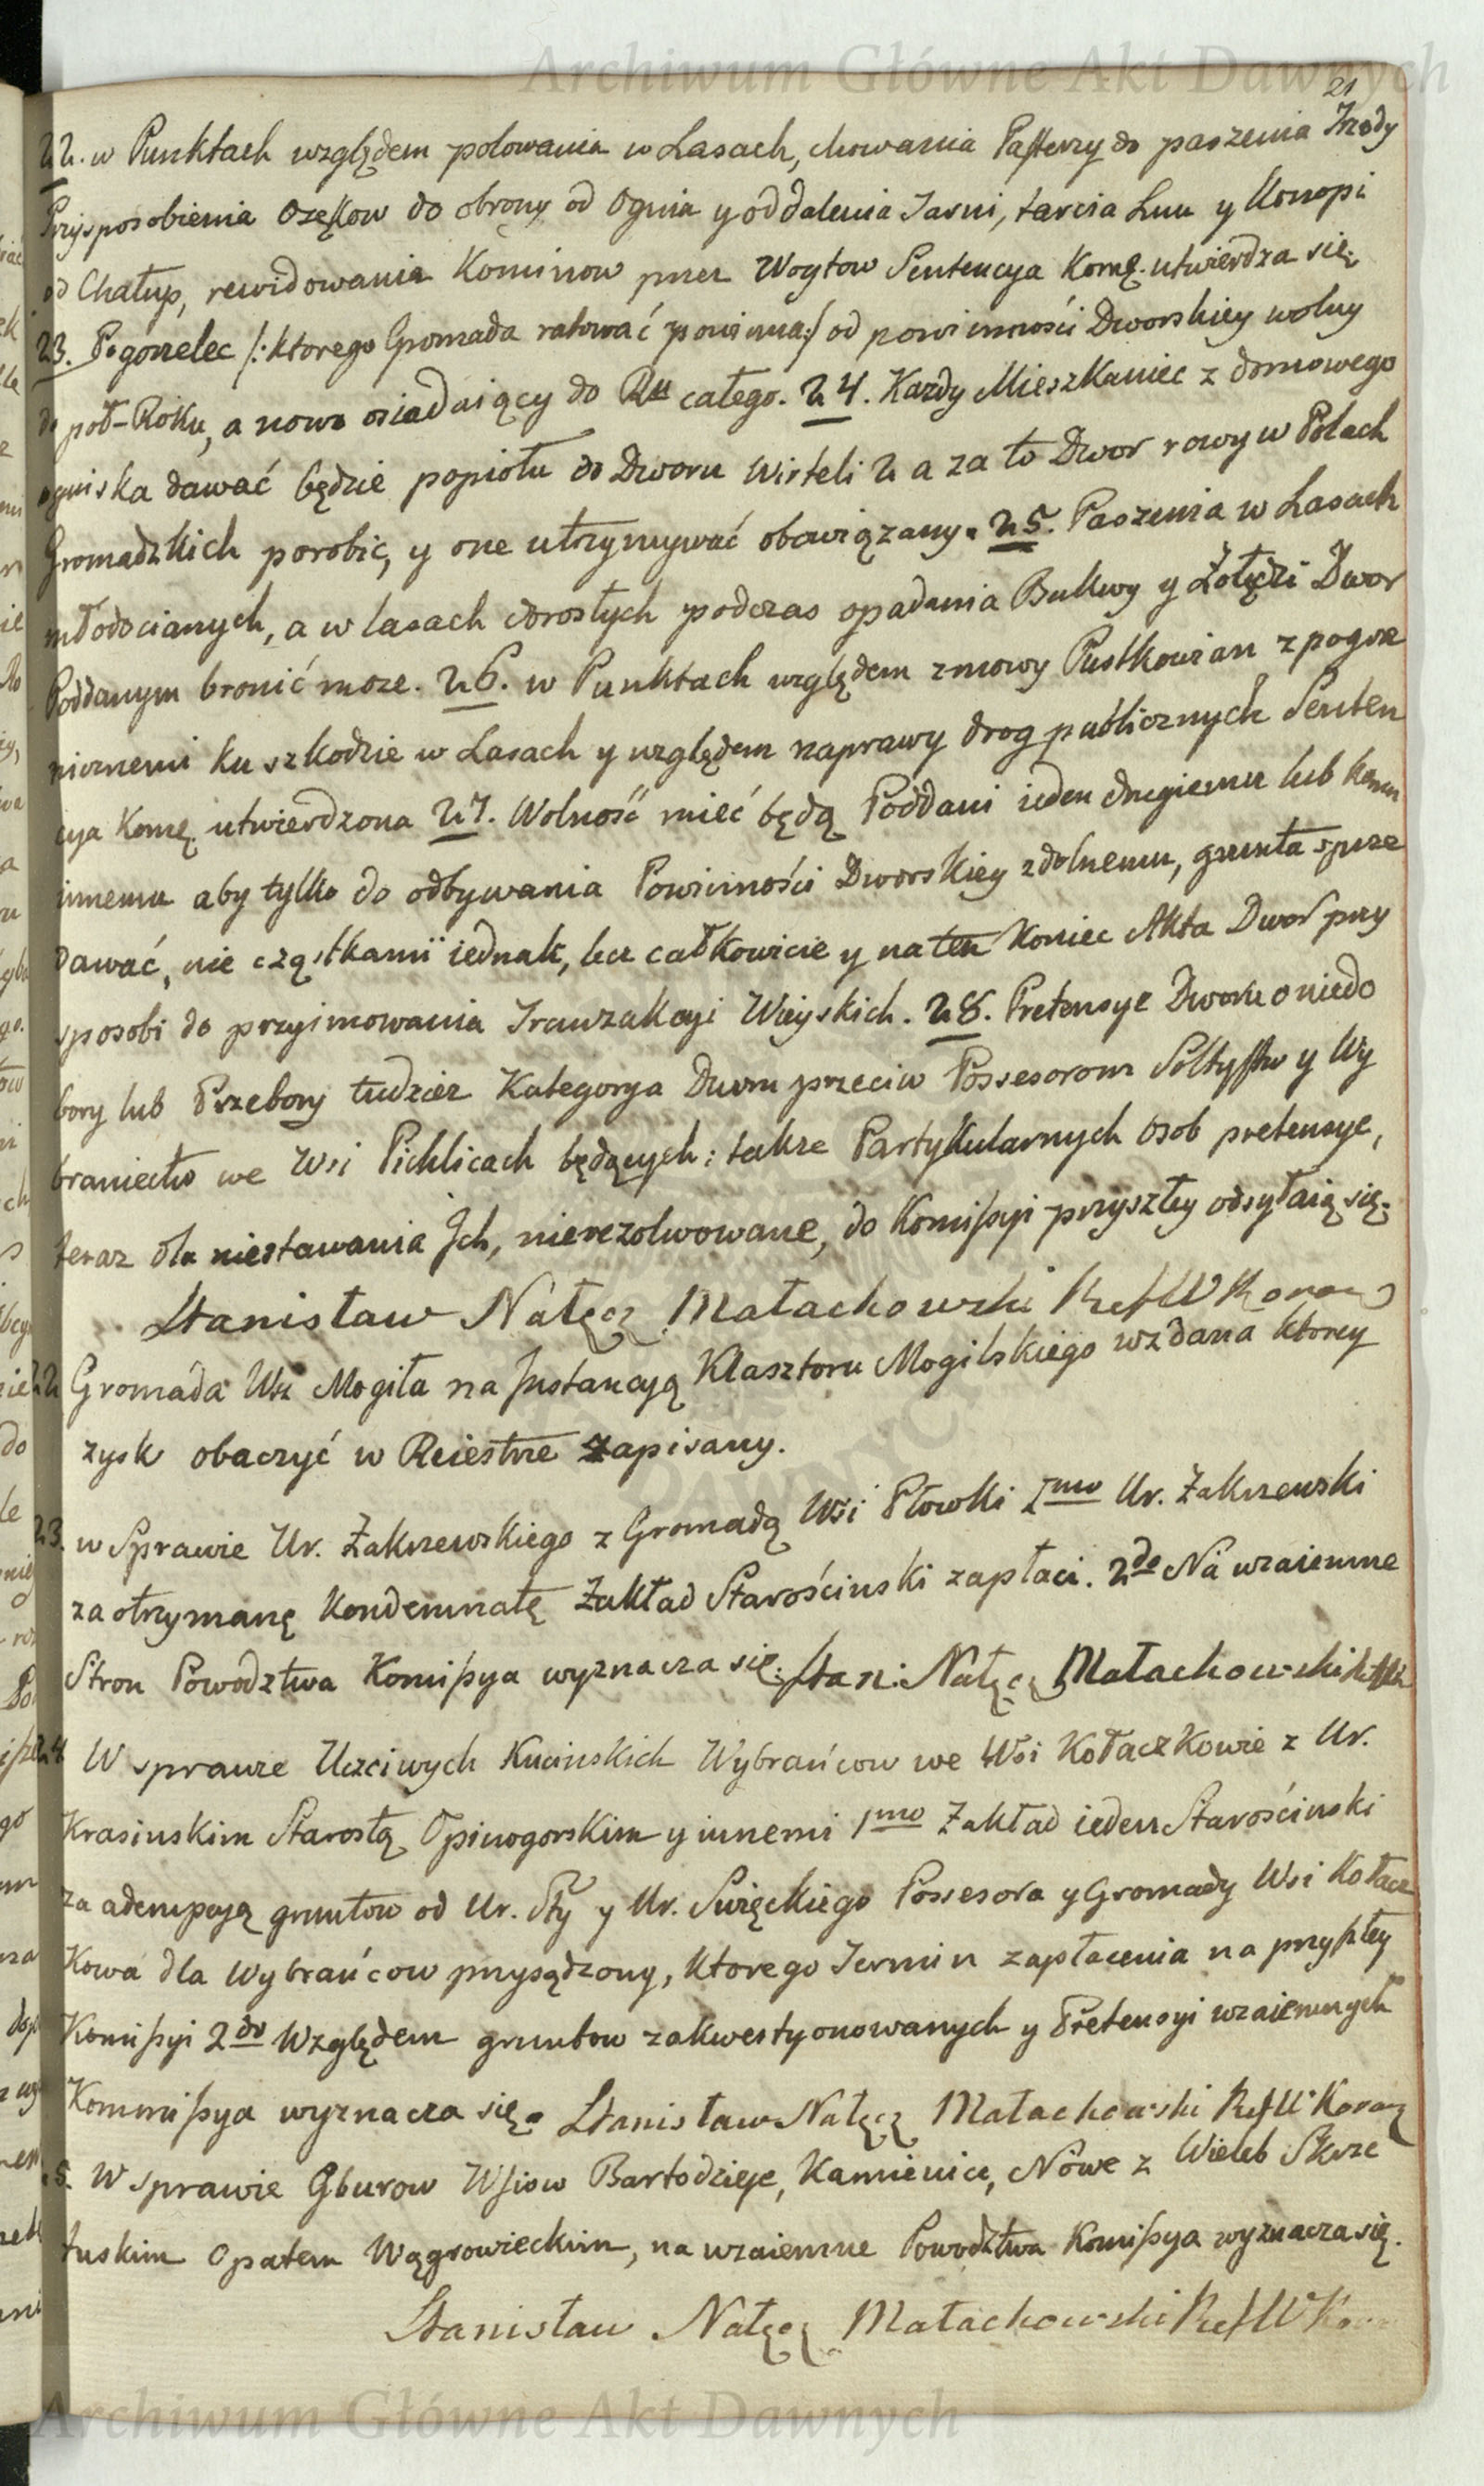 Archiwum Główne Akt Dawnych
21
22. w Punktach względem polowania w Lasach, chowania Pasterzy do paszenia Trzody
Przysposobienia Ozękow do obrony od Ognia y oddalenia Jasni, tarcia Lnu y Konopi
od Chałup, rewidowania Kominow przez Woytow Sentencya Komę. utwierdza się.
23. Pogorzelec /: ktorego Gromada ratować powinna :/ od powinności Dworskiey wolny
do poł-Roku, a nowo osiadaiący do Ru całego. 24. Kazdy Mieszkaniec z domowego
ogniska dawać będzie popiołu do Dworu Wirteli 2 a za to Dwor rowy w Polach
Gromadzkich porobić, y one utrzymywać obowiązany. 25. Paszenia w Lasach
młodocianych, a w lasach dorosłych podczas opadania Bukwy y Żołędzi Dwor
Poddanym bronić moze. 26. w Punktach względem zmowy Pustkowian z pogra
nicznemi ku szkodzie w Lasach y względem naprawy drog publicznych Senten
cya Komę utwierdzona 27. Wolność mieć będą Poddani ieden drugiemu lub komu
innemu aby tylko do odbywania Powinności Dworskiey zdolnemu, grunta sprze
dawać, nie cząstkami iednak, lecz całkowicie y na ten Koniec Akta Dwor przy
sposobi do przyimowania Tranzakcyi Wieyskich. 28. Pretensye Dworu o niedo
bory lub Przebory tudziez Kategorya Dworu przeciw Possesorom Sołtystw y Wy
braniectw we Wsi Pichlicach będących: takze Partykularnych osob pretensye,
teraz dla niestawania Ich, nierezolwowane, do Komissyi przyszłey odsyłaią się.
Stanisław Nałęcz Małachowski Ref W Koron
22 Gromada Wsi Mogiła na Instancyą Klasztoru Mogilskiego wzdana ktorey
zysk obaczyć w Reiestrze zapisany.
23. w Sprawie Ur. Zakrzewskiego z Gromadą Wsi Płowki 1mo Ur. Zakrzewski
za otrzymanę Kondemnatę Zakład Starościnski zapłaci. 2do Na wzaiemne
Stron Powodztwa Komissya wyznacza się. Stan: Nałęcz Małachowski
24 W sprawie Uczciwych Kucinskich Wybrańcow we Wsi Kołaczkowie z Ur.
Krasinskim Starostą Opinogorskim y innemi 1mo Zakład ieden Starościnski
za adempcyą gruntow od Ur. Sty y Ur. Swięckiego Possesora y Gromady Wsi Kołacz
Kowa dla Wybrańcow przysądzony, ktorego Termin zapłacenia na przyszłey
Komissyi 2do Względem gruntow zakwestyonowanych y Pretensyi wzaiemnych
Kommissya wyznacza się. Stanisław Nałęcz Małachowski Ref W Koron
25. W sprawie Gburow Wsiow Bartodzieje, Kamienice, Nowe z Wieleb Skrze
tuskim Opatem Wągrowieckim, na wzaiemne Powodztwa Komissya wyznacza się.
Stanisław Nałęcz Małachowski Ref W Koron
Archiwum Główne Akt Dawnych